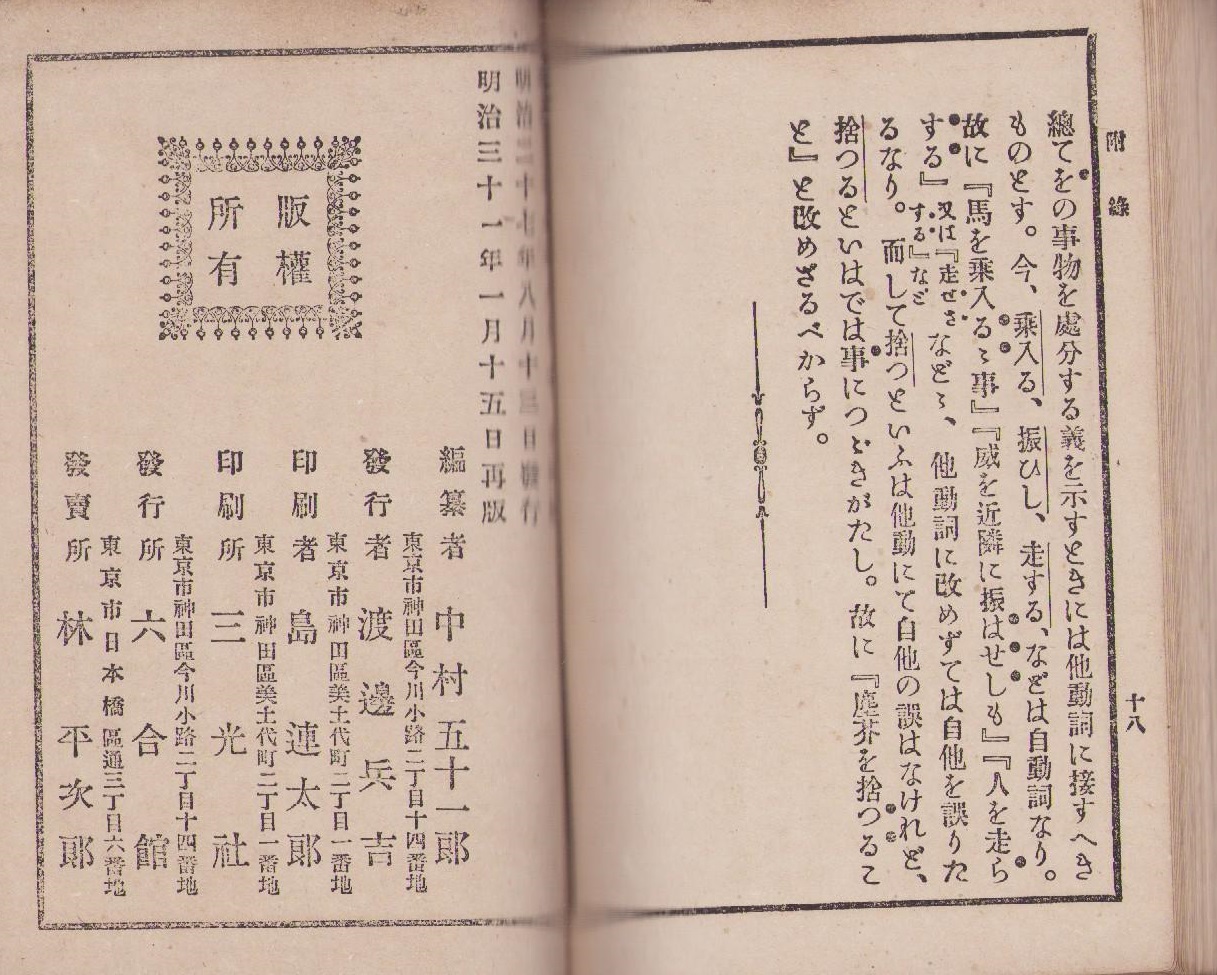 附錄
十八
總てをの事物を處分する義を示すときには他動詞に接すへき
ものとす。今、乘入る、振ひし、走する、などは自動詞なり。
故に『馬を乘入るゝ事』『威を近隣に振はせしも』『人を走ら
する』又は『走せさする』など などゝ、他動詞に改めずては自他を誤りた
るなり。而して捨つといふは他動にて自他の誤はなけれど、
捨つるといはでは事につゞきがたし。故に『塵芥を捨つるこ
と』と改めざるべからず。
明治二十七年八月十三日發行
明治三十一年一月十五日再版
版權
所有
編纂者 中村五十一郎
東京市神田區今川小路二丁目十四番地
發行者 渡邊兵吉
東京市神田區美土代町二丁目一番地
印刷者 島連太郎
東京市神田區美土代町二丁目一番地
印刷所 三光社
東京市神田區今川小路二丁目十四番地
發行所 六合館
東京市日本橋區通三丁目六番地
發賣所 林平次郎